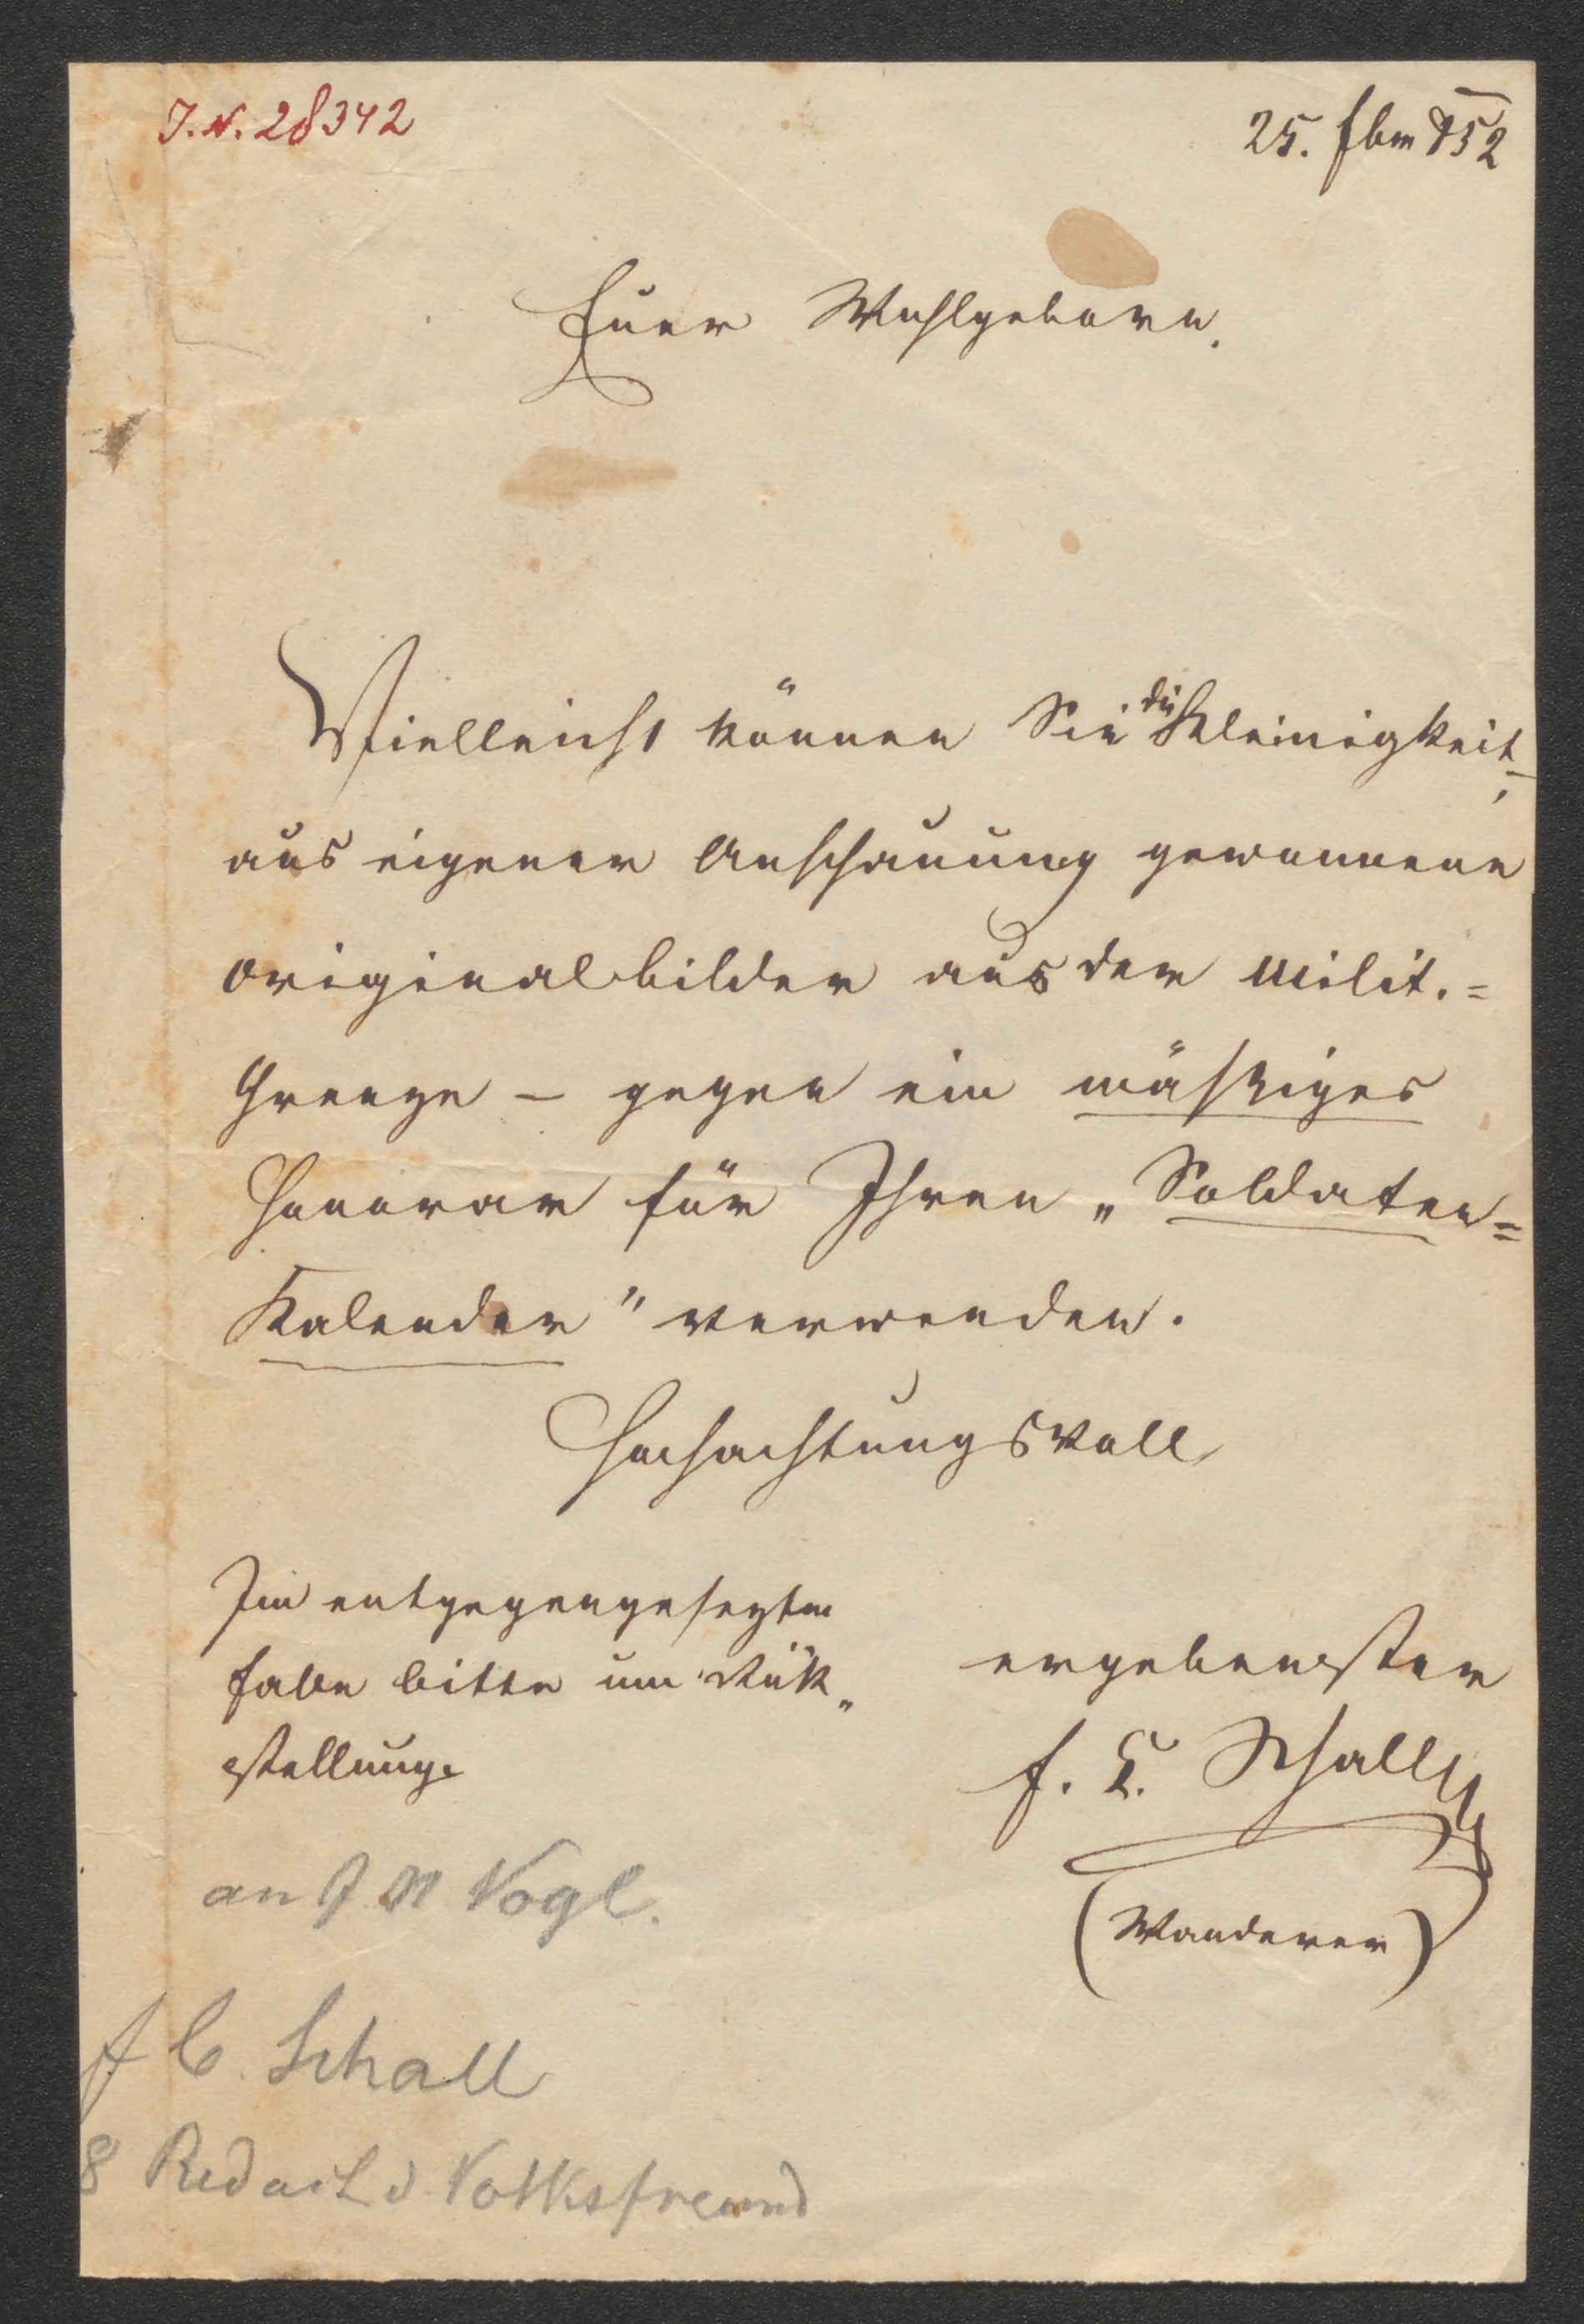 J. N. 28342
25. Fbm 852
Euer Wohlgeborn.
Vielleicht können Sie die Kleinigkeit –,
aus eigener Anschauung gewonnene
Originalbilder aus der Milit.=
Grenze – gegen ein mäßiges
Honorar für Ihren „Soldaten=
Kalender" verwenden.
Hochachtungsvoll
Im entgegengesezten
Falle bitte um Rük„
stellung.
ergebenster
F. C. Schall
(Wanderer)
an J N Vogl.
F C. Schall
Redact d. Volksfreund